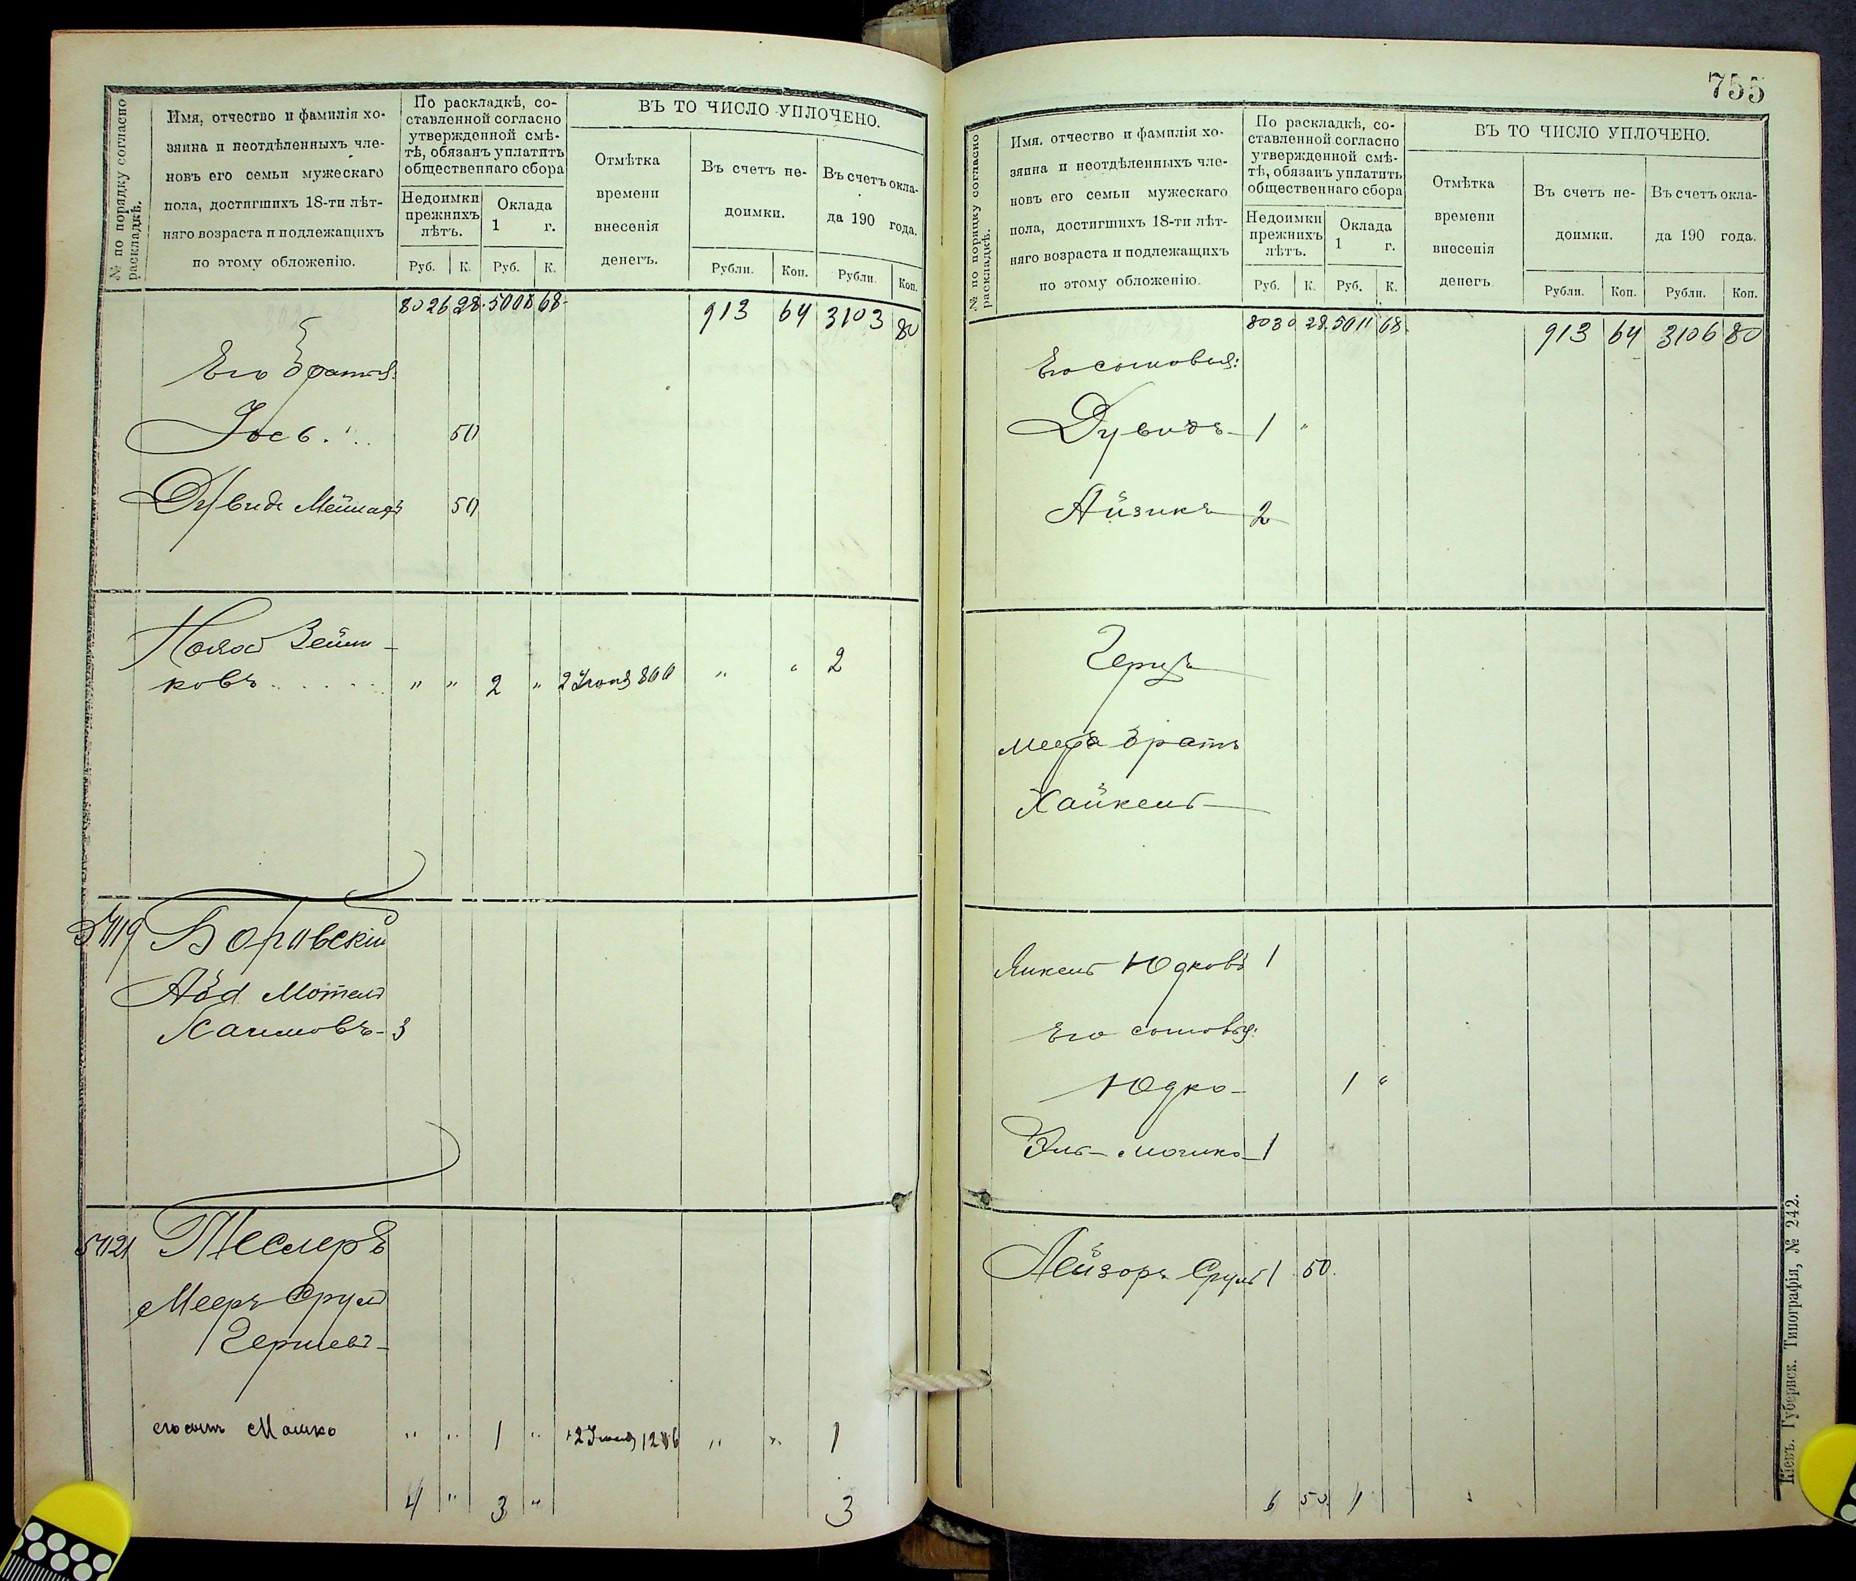 755
№ по порядку согласно раскладкѣ.
Имя, отчество и фамилія хо-
зяина и неотдѣленныхъ чле-
новъ его семьи мужескаго
пола, достигшихъ 18-ти лѣт-
няго возраста и подлежащихъ
по этому обложенію.
По раскладкѣ, со-
ставленной согласно
утвержденной смѣ-
тѣ, обязанъ уплатить
общественнаго сбора
Недоимки
прежнихъ
лѣтъ.
Оклада
1 г.
Руб. К. Руб. К.
ВЪ ТО ЧИСЛО УПЛОЧЕНО.
Отмѣтка
времени
внесенія
денегъ.
Въ счетъ не-
доимки.
Въ счетъ окла-
да 190 года.
Рубли. Коп. Рубли Коп.
8026 28 5008 68 913 64 3103 80
Его братья:
Іось 50
Дувидъ Мейлахъ 50
ковъ " " 2 " " " 2
5119 Боравскій
Аба Мотель
Хаимовъ 3
5121 Теслеръ
Мееръ Сруль
Гершевъ
его сынъ Мошко " " 1 " " " 1
4 " 3 " 3
№ по порядку согласно раскладкѣ.
Имя, отчество и фамилія хо-
зяина и неотдѣленныхъ чле-
новъ его семьи мужескаго
пола, достигшихъ 18-ти лѣт-
няго возраста и подлежащихъ
по этому обложенію.
По раскладкѣ, со-
ставленной согласно
утвержденной смѣ-
тѣ, обязанъ уплатить
общественнаго сбора
Недоимки
прежнихъ
лѣтъ.
Оклада
1 г.
Руб. К. Руб. К.
ВЪ ТО ЧИСЛО УПЛОЧЕНО.
Отмѣтка
времени
внесенія
денегъ.
Въ счетъ не-
доимки.
Въ счетъ окла-
да 190 года.
Рубли. Коп. Рубли. Коп.
8030 28 5011 68 913 64 3106 80
Его сыновья:
Дувидъ 1 "
Айзикъ 2
Герцъ
Меера братъ
Хайкель
Янкель Юдковъ 1
Его сыновья:
Юдко 1 "
Эль-Мошко 1
Лейзоръ Сруль 1 50
6 50 1
Кіевъ. Губернск. Типографія, № 242.